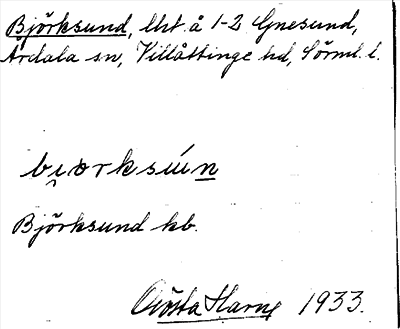 Björksund, lht. å 1-2 Gnesund,
Årdala sn, Villåttinge hd, Sörml. l.
bi̯orksún
Björksund kb.
Gösta Harng 1933.